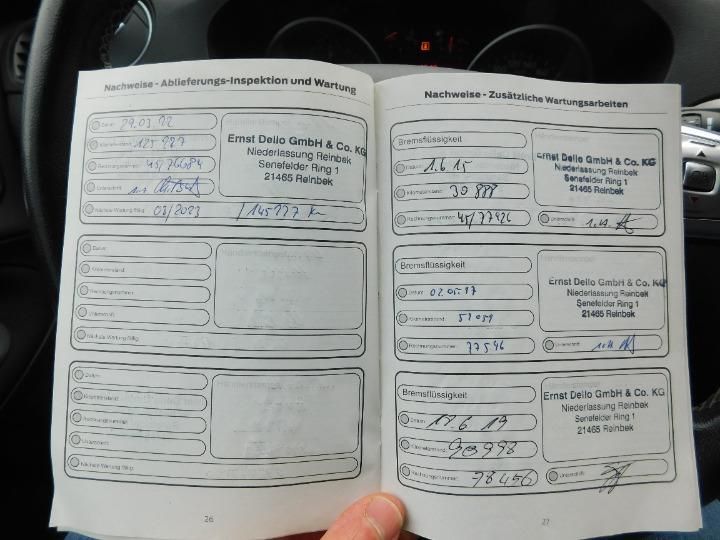 Nachweise - Ablieferungs-Inspektion und Wartung
Datum: 29.03.22
Kilometerstand: 125 227
Rechnungsnummer: 45/76684
Unterschrift:
Nächste Wartung fällig: 03/2023 / 145227 Km
Ernst Dello GmbH & Co. KG
Niederlassung Reinbek
Senefelder Ring 1
21465 Reinbek
Datum:
Kilometerstand:
Rechnungsnummer:
Unterschrift:
Nächste Wartung fällig:
Datum:
Kilometerstand:
Rechnungsnummer:
Unterschrift:
Nächste Wartung fällig:
26
Nachweise - Zusätzliche Wartungsarbeiten
Bremsflüssigkeit
Datum: 1.6.15
Kilometerstand: 30 888
Rechnungsnummer: 45/77426
Ernst Dello GmbH & Co. KG
Niederlassung Reinbek
Senefelder Ring 1
21465 Reinbek
Unterschrift:
Bremsflüssigkeit
Datum: 02.05.17
Kilometerstand: 51059
Rechnungsnummer: 77546
Ernst Dello GmbH & Co. KG
Niederlassung Reinbek
Senefelder Ring 1
21465 Reinbek
Unterschrift:
Bremsflüssigkeit
Datum: 18.6.19
Kilometerstand:
Rechnungsnummer: 78456
Ernst Dello GmbH & Co. KG
Niederlassung Reinbek
Senefelder Ring 1
21465 Reinbek
Unterschrift:
27